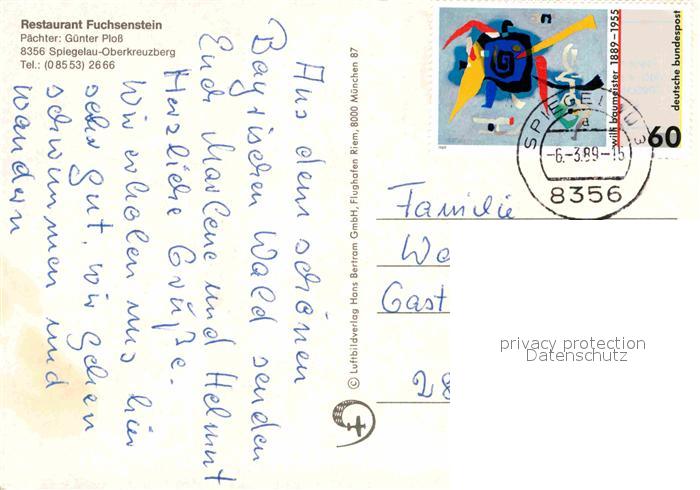 Restaurant Fuchsenstein
Pächter: Günter Ploß
8356 Spiegelau-Oberkreuzberg
Tel.: (0 85 53) 26 66
Aus dem schönen
Bayrischen Wald senden
Euch Marlene und Helmut
Herzliche Grüße.
Wir erholen uns hier
sehr gut, wir gehen
schwimmen und
wandern
© Luftbildverlag Hans Bertram GmbH, Flughafen Riem, 8000 München 87
willi baumeister 1889-1955
deutsche bundespost
60
SPIEGELAU 3
a
-6.-3.89-15
8356
Familie
We
Gast
28
privacy protection
Datenschutz